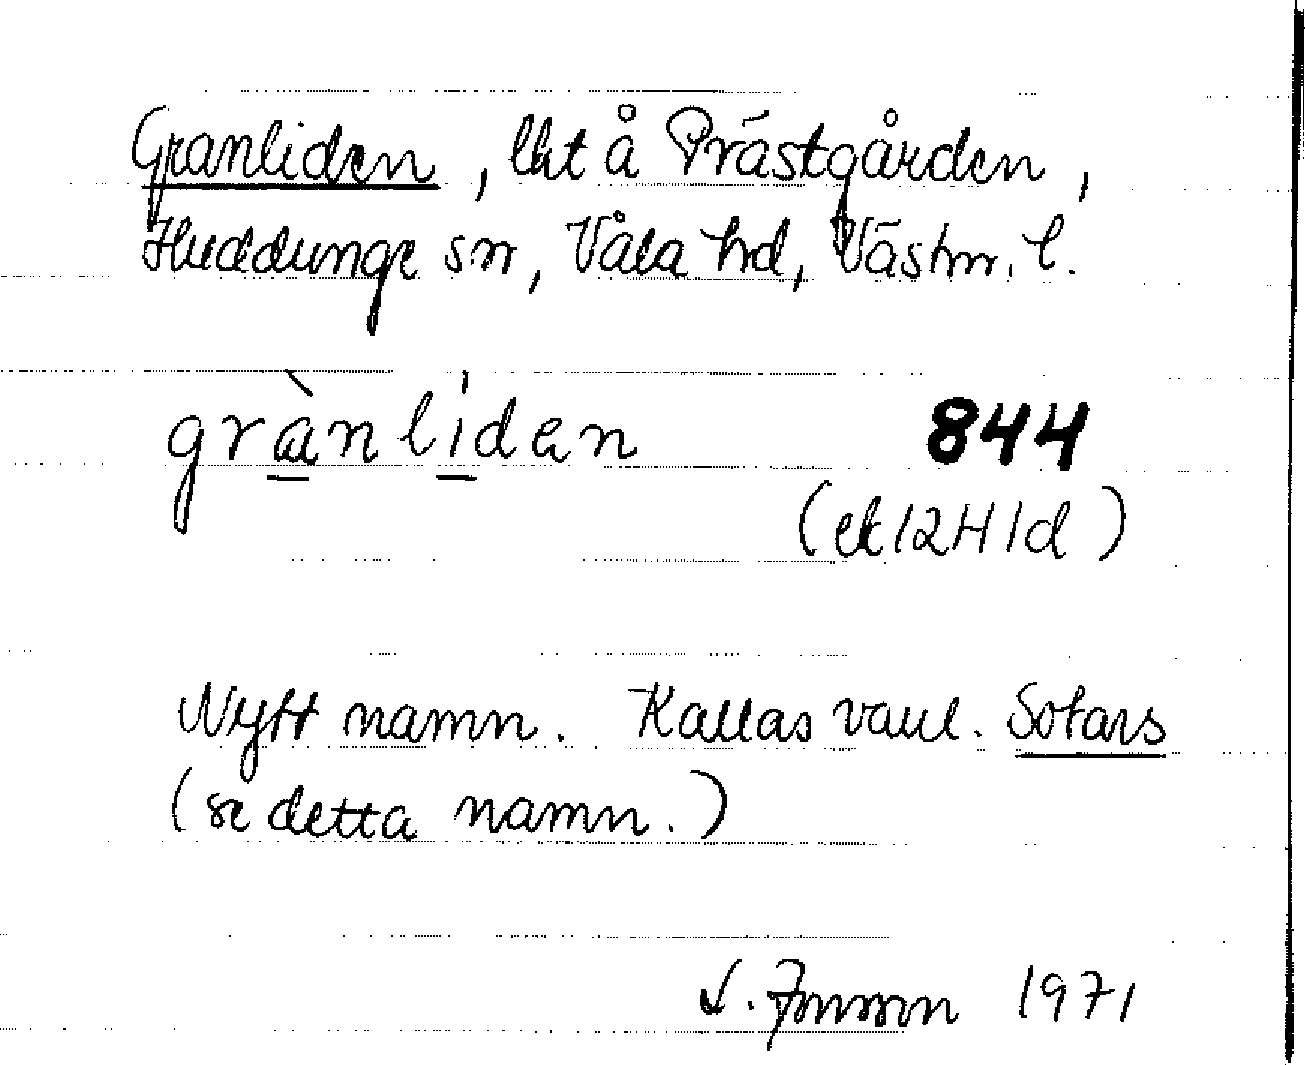 Granliden, lht å Prästgården,
Huddunge sn, Våla hd, Västm. l.
grànlíden 844
(ek 12H 1d)
Nytt namn. Kallas vanl. Sotars
(se detta namn.)
1971